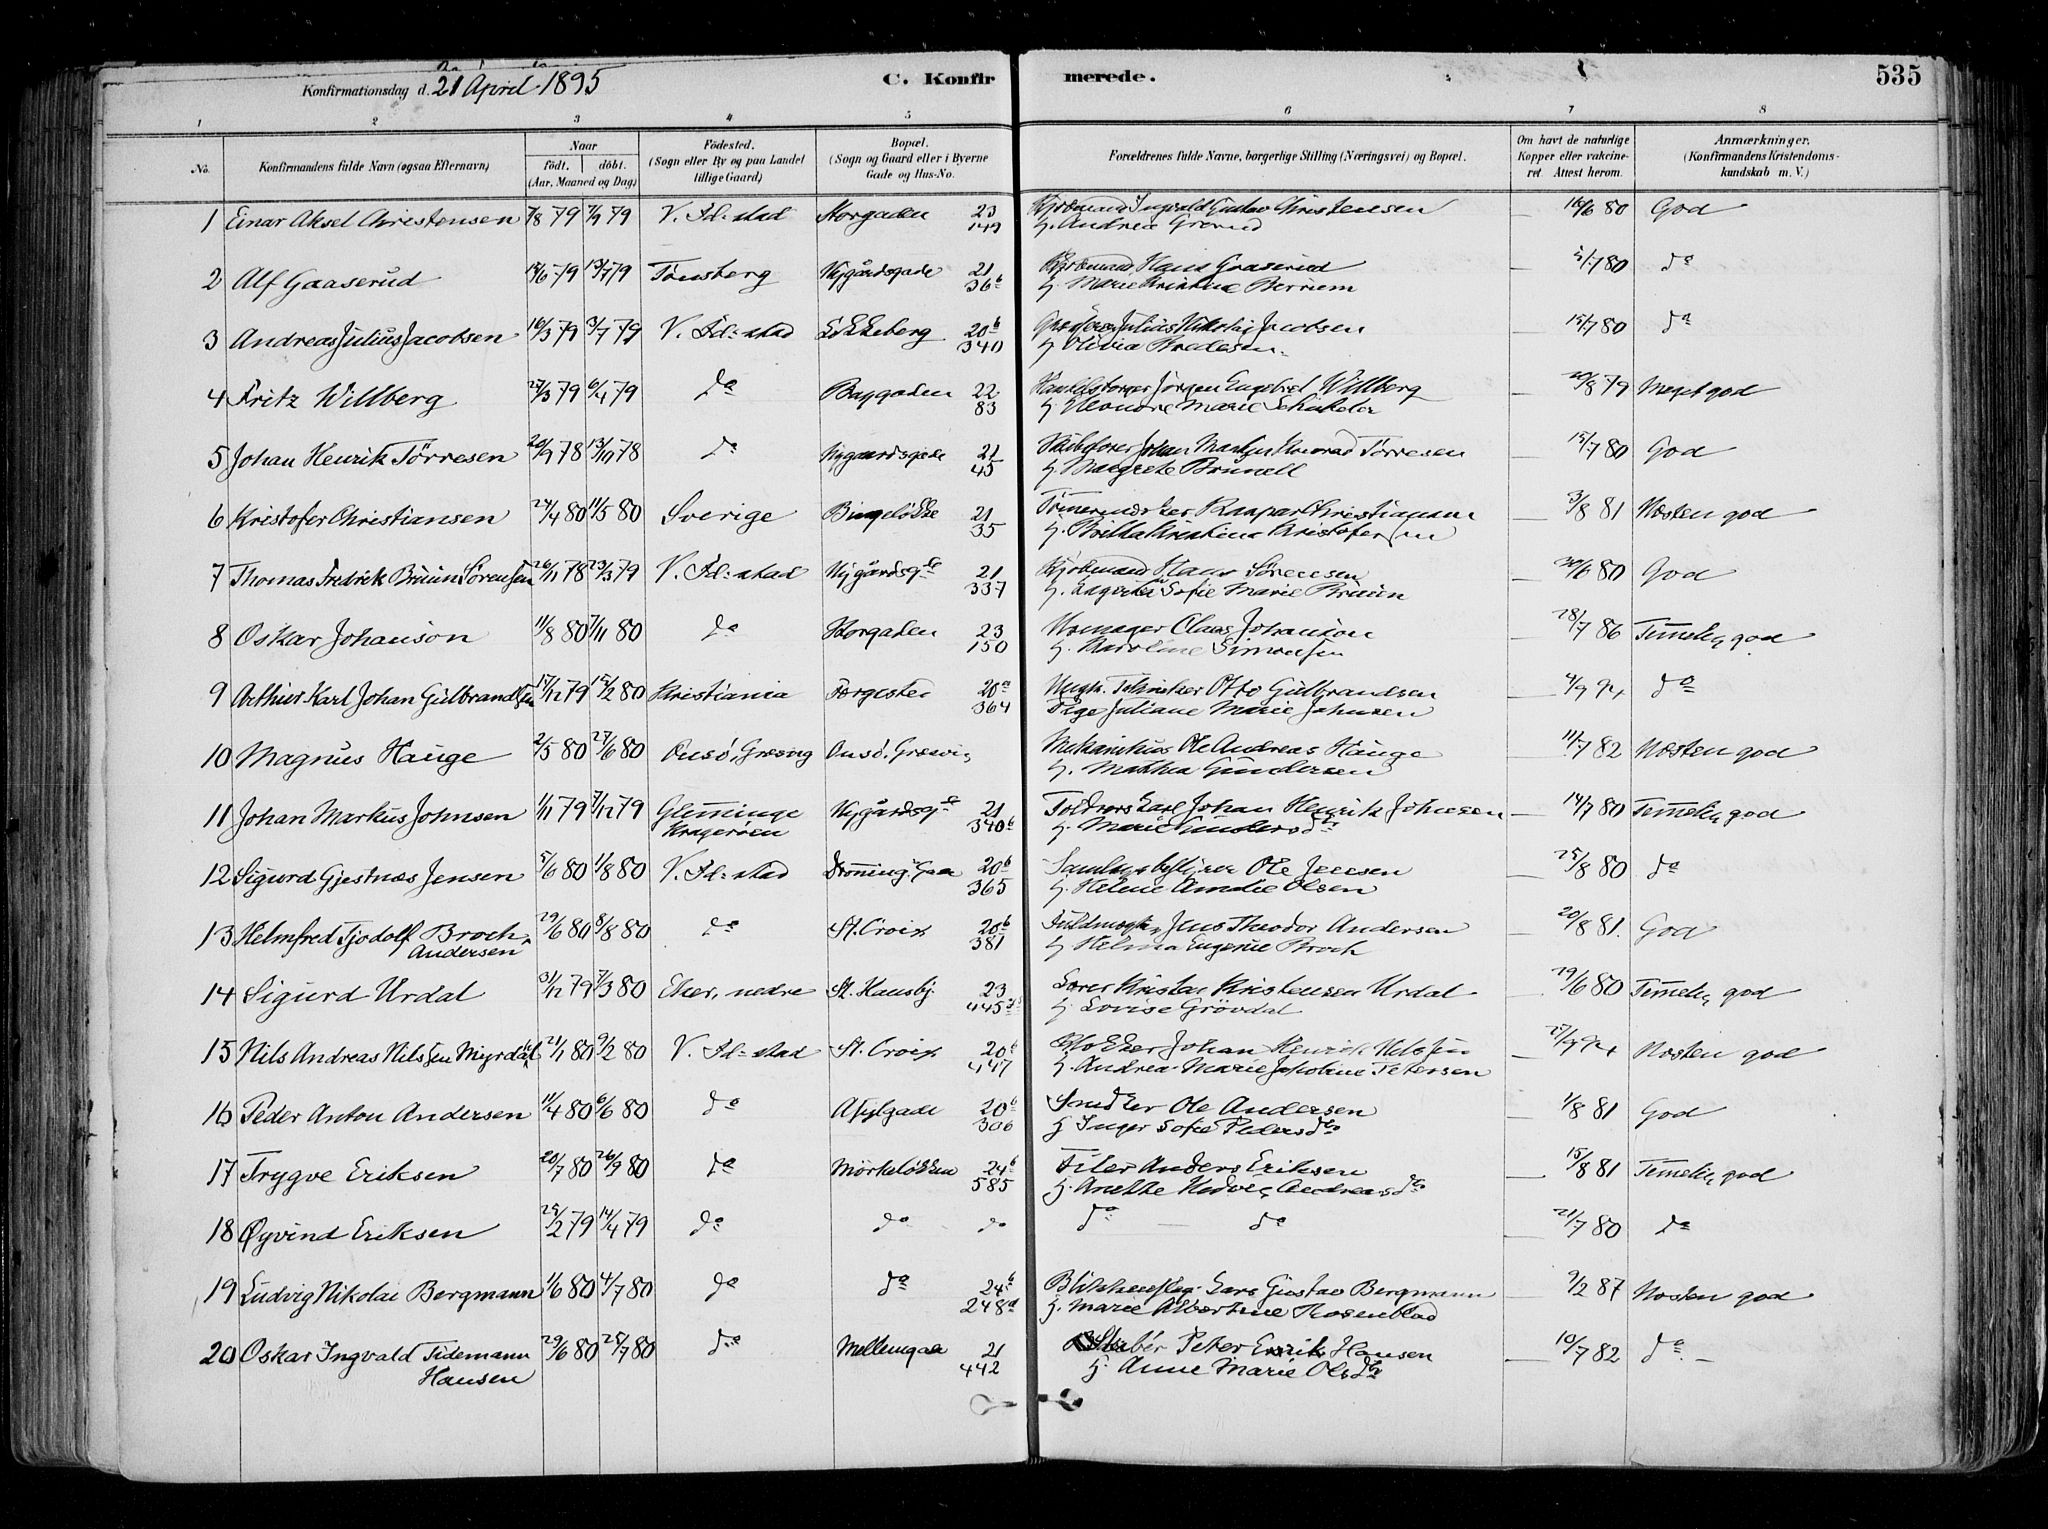 Konfirmationsdag d. 21 April 1895
C. Konfirmerede.
535
1 2 3 4 5 6 7 8
No.
Konfirmandens fulde Navn (øgsaa Efternavn)
Naar
födt. döbt.
(Aar, Maaned og Dag)
Födested.
(Sogn eller By og paa Landet
tillige Gaard)
Bopæl.
(Sogn og Gaard eller i Byerne
Gade og Hus-No.
Forældrenes fulde Navne, borgerlige Stilling (Næringsvei) og Bopæl.
Om havt de naturlige
Kopper eller vakcine-
ret. Attest herom.
Anmærkninger.
(Konfirmandens Kristendoms-
kundskab m. V.)
1 Einar Aksel Christensen 7/8 79 7/9 79 V. Fd:stad Storgaden 23 Kjøbmand Ingvald Gustav Christensen 16/6 80 God
149 H. Andrea Grerud
2 Alf Gaaserud 12/6 79 13/7 79 Tønsberg Nygårdsgade 21 Kjøbmand Hans Gaaserud 5/7 80 do
36b H. Marie Kristine Berrum
3 Andreas Julius Jacobsen 16/3 79 3/7 79 V. Fd:stad L. Ekeberg 20b Julius Nikolai Jacobsen 15/7 80 do
340 H. Olivia
4 Fritz Willberg 27/3 79 6/4 79 do Baggaden 22 Jørgen Engebret Willberg 20/8 79 Meget god
83 H. Eleonore Marie
5 Johan Henrik Törresen 20/9 78 13/10 78 do Nygaardsgade 21 Johan Martin Konrad Törresen 15/7 80 God
45 H. Margrete Brunell
6 Kristofer Christiansen 24/4 80 11/5 80 Sverige Bingeløkke 21 Tømmermand Kaspar Kristiansen 3/8 81 Næsten god
35 H. Kristine Kristofersen
7 Thomas Fredrik Bruun Sørensen 26/11 78 23/3 79 V. Fd:stad Nygårdsgde 21 Kjøbmand Hans Sørensen 20/6 80 God
337 H. Sofie Marie Bruun
8 Oskar Johanson 11/8 80 7/11 80 do Storgaden 23 Urmager Claes Johanson 28/7 86 Temmelig god
150 H. Karoline Simonsen
9 Arthur Karl Johan Gulbrandsen 17/12 79 15/2 80 Kristiania Færgested 20a Ungk. Otto Gulbrandsen 4/9 94 do
364 Pige Juliane Marie Johnsen
10 Magnus Hauge 2/5 80 27/6 80 Onsö, Græsvig Onsö, Græsvig Mekanikus Ole Andreas Hauge 11/7 82 Næsten god
H. Mathea Gundersen
11 Johan Markus Johnsen 1/11 79 7/12 79 Glemminge Nygårdsgde 21 Karl Johan Henrik Johnsen 14/7 80 Temmelig god
Kragerøen 340b H. Marie Gundersdtr
12 Sigurd Gjestnæs Jensen 5/6 80 1/8 80 V. Fd:stad Dronning. Gaa 20b Ole Jensen 25/8 80 do
365 H. Helene Amalie Olsen
13 Helmfred Tjodolf Broch 29/6 80 8/8 80 do St. Croix 20b Fuldmægtig Jens Theodor Andersen 20/8 81. God
Andersen 381 H. Helma Eugenie Broch
14 Sigurd Urdal 31/12 79 7/3 80 Eker, nedre St. Hansbj. 23 Lærer Kristen Kristensen Urdal 29/6 80 Temmelig god
445 H. Lovise Grövdal
15 Nils Andreas Nilssen Myrdal 21/1 80 9/2 80 V. Fd:stad St. Croix 20b Blokker Johan Henrik Nilssen 27/7 94 Næsten god
447 H. Andrea Marie Jakobine Petersen
16 Peder Anton Andersen 11/4 80 6/6 80 do Asylgade 20b Snedker Ole Andersen 1/8 81 God
306 H. Inger Sofie Pedersdtr
17 Trygve Eriksen 20/7 80 26/9 80 do Mørkeløkken 24b Filer Anders Eriksen 15/8 81 Temmelig god
585 H. Anette Hedvig Andreasdtr
18 Øyvind Eriksen 25/2 79 14/4 79 do do do do do 21/7 80 do
19 Ludvig Nikolai Bergmann 1/6 80 4/7 80 do do 24b Blikkenslag. Lars Gustav Bergmann 9/2 87 Næsten god
248a H. Marie Albertine Rosenblad
20 Oskar Ingvald Tidemann 29/6 80 25/7 80 do Mellemgaa 21 Peter Enrik Hansen 10/7 82 do
Hansen 442 H. Anne Marie Olsdtr